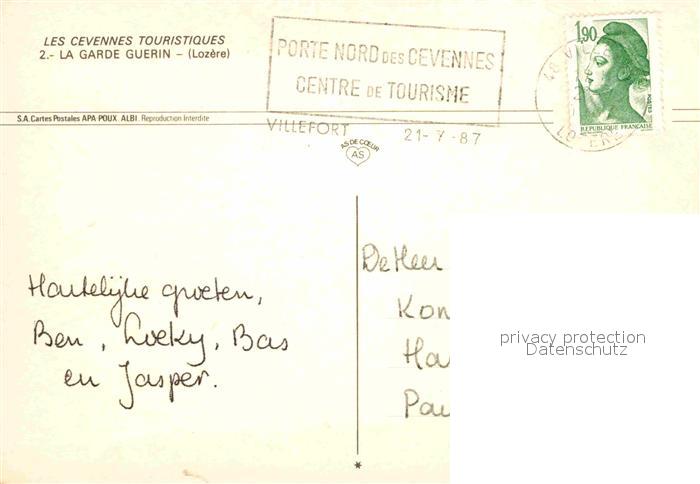 LES CEVENNES TOURISTIQUES
2.- LA GARDE GUERIN - (Lozère)
S.A. Cartes Postales APA-POUX. ALBI. Reproduction Interdite
PORTE NORD DES CEVENNES
CENTRE DE TOURISME
VILLEFORT 21-7-87
1,90
POSTES
REPUBLIQUE FRANÇAISE
48
LOZERE
AS DE CŒUR
AS
Hartelijke groeten,
Ben, Loeky, Bas
en Jasper.
De Heer
Kon
Ha
Pau
privacy protection
Datenschutz